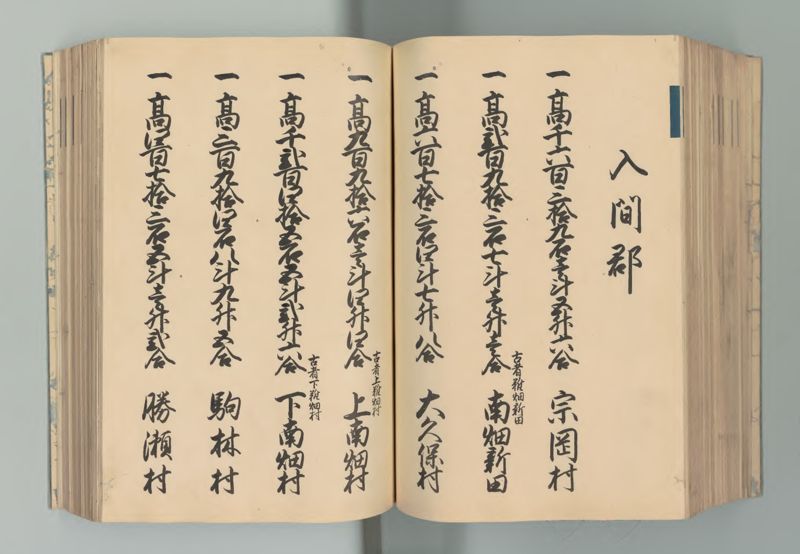 入間郡
一高千六百三拾九石壱斗五升六合 宗岡村
古者難畑新田
一高弐百九拾三石七斗壱升壱合 南畑新田
一高六百七拾三石四斗七升八合 大久保村
古者上難畑村
一高九百九拾六石壱斗四升四合 上南畑村
古者下難畑村
一高千弐百四拾五石五斗弐升六合 下南畑村
一高三百九拾四石八斗九升五合 駒林村
一高四百七拾三石五斗壱升弐合 勝瀬村